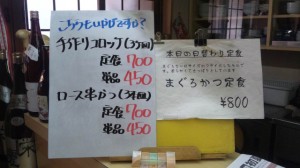 こちらもいかがですか?
手作りコロッケ(3ケ)
定食 700
単品 450
ロース串かつ(3本)
定食 700
単品 450
本日の日替わり定食
まぐろかつ定食
¥800